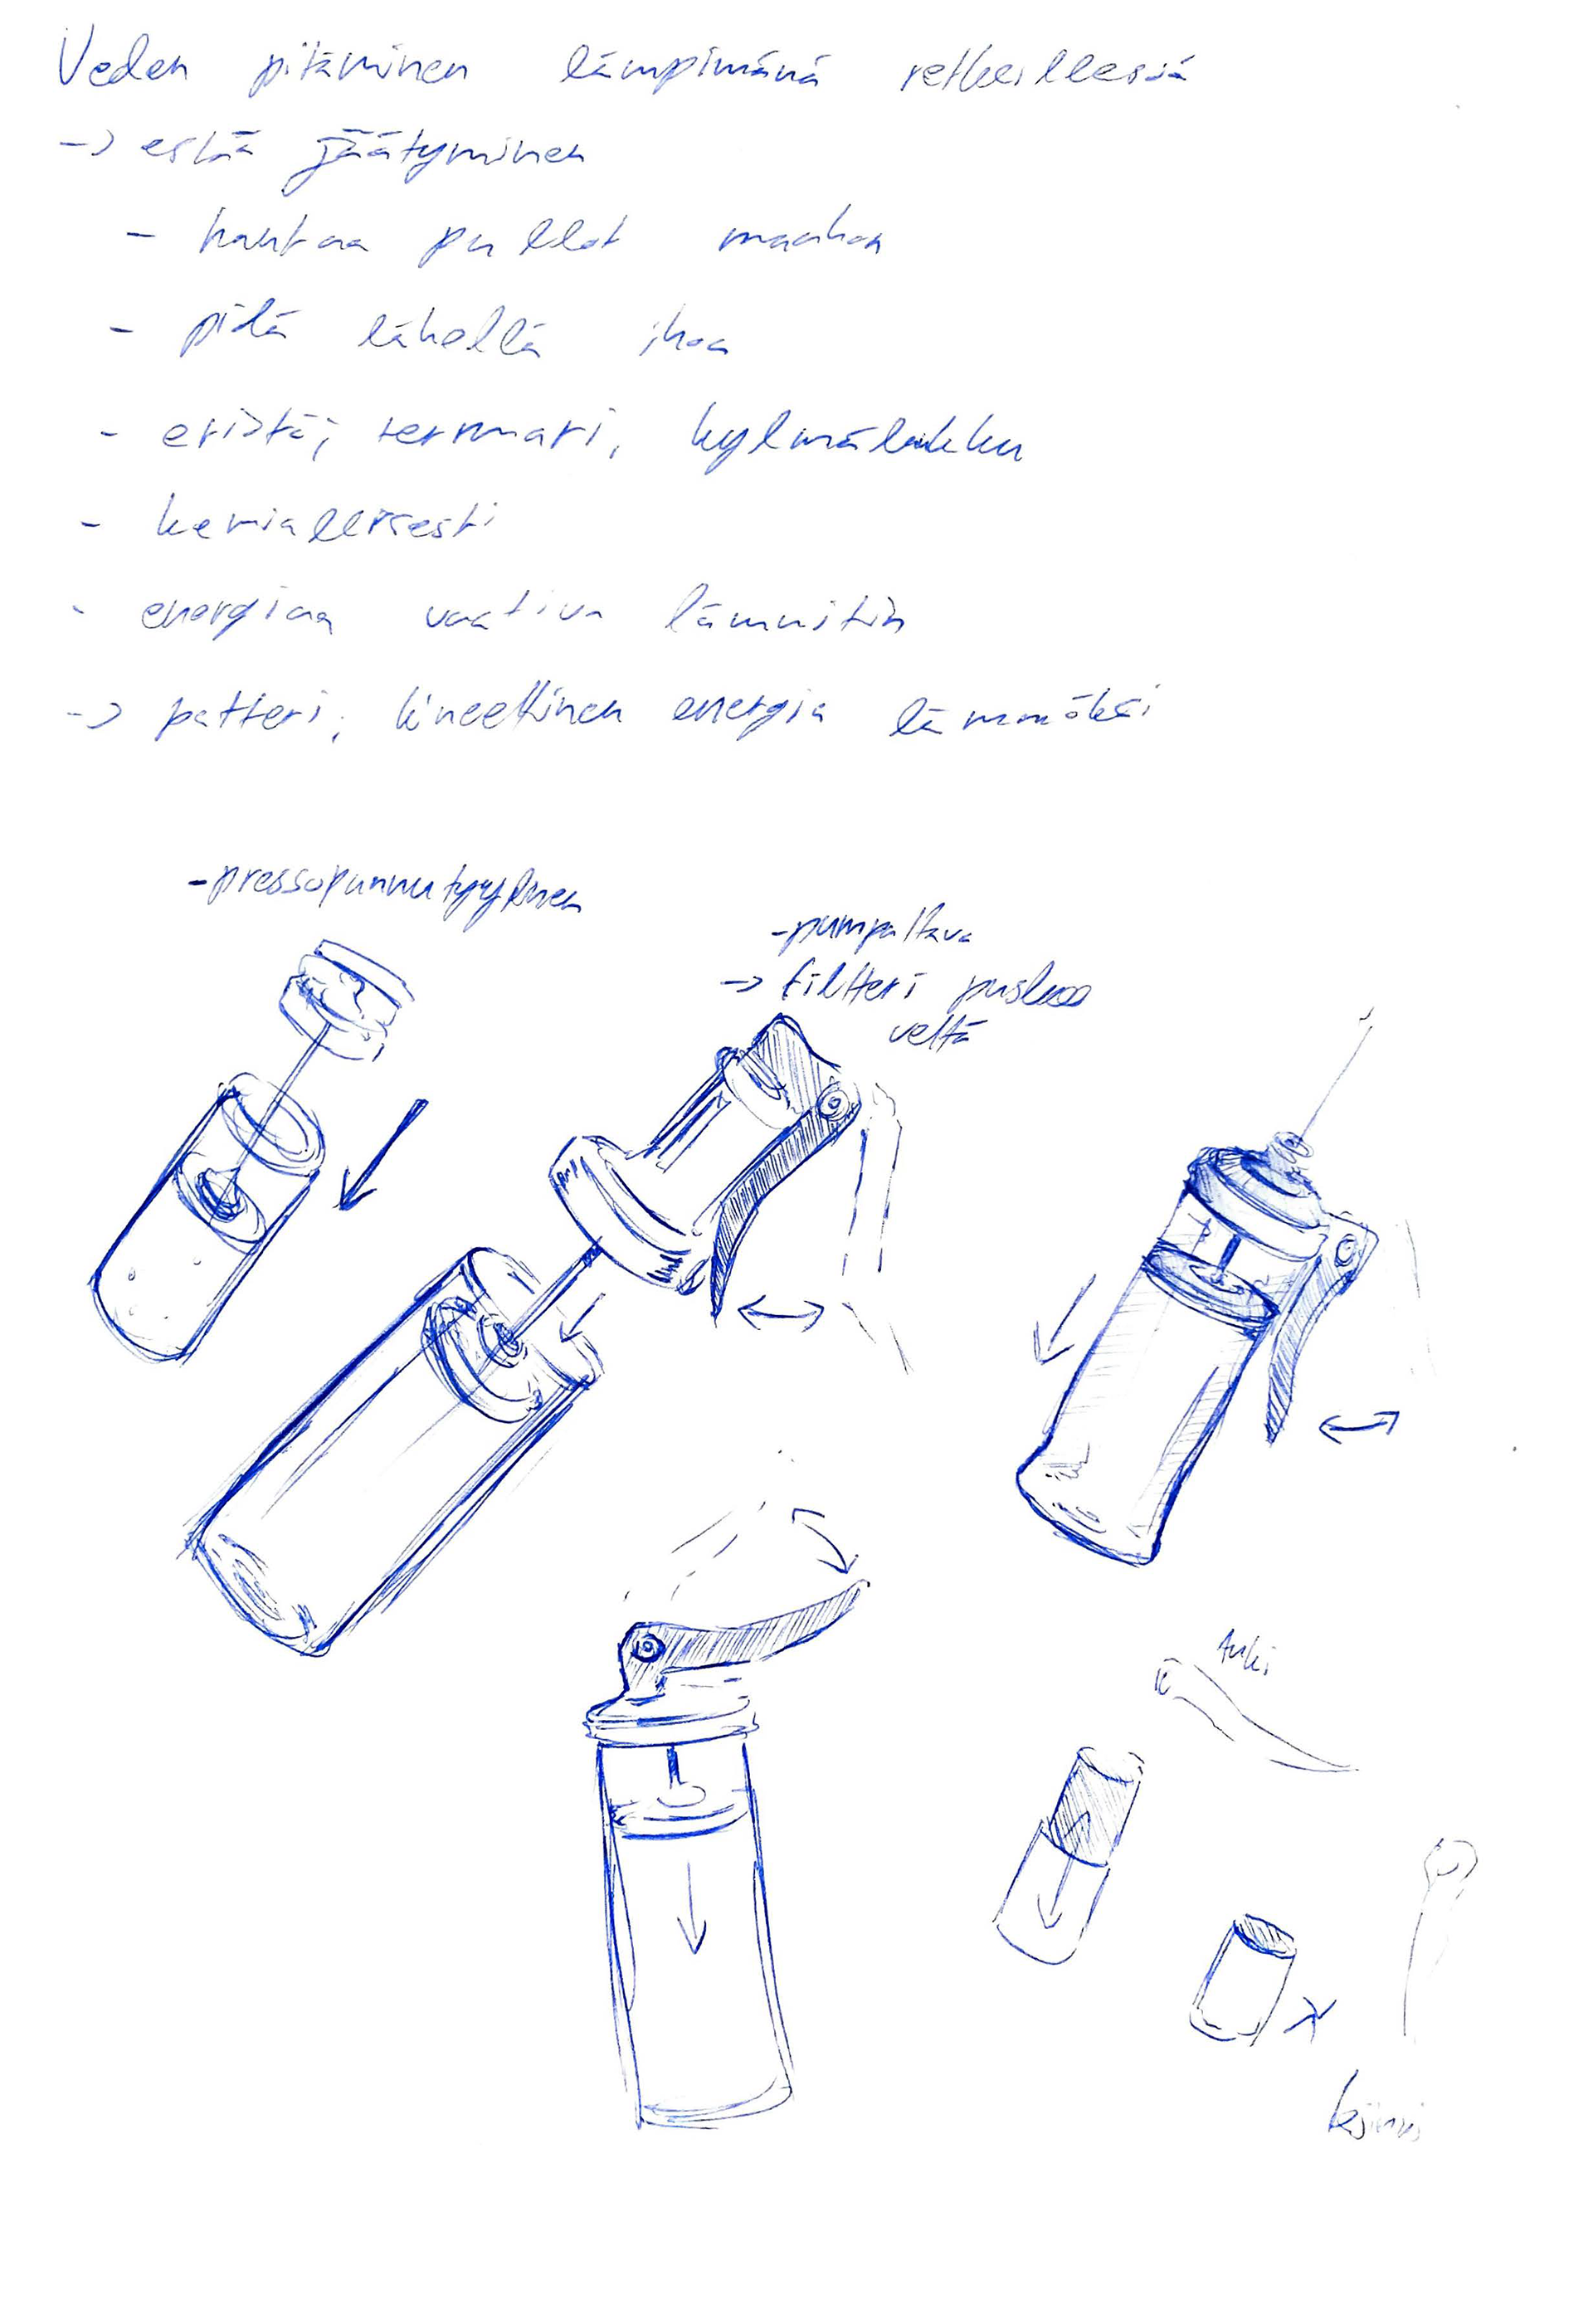 Veden pitäminen lämpimänä retkeillessä
-> estä jäätyminen
- hautaa pullot maahan
- pidä lähellä ihoa
- eristä; termari, kylmälaukku
- kemiallisesti
- energiaa vaativa lämmitin
-> patteri, kineettinen energia lämmöksi
- pressopannutyylinen
- pumpattava
-> filtteri puskee
vettä
tuki